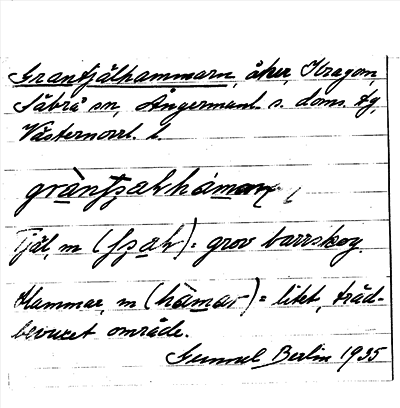 Grantjälhammarn, åker, Kragom,
Säbrå sn, Ångermanl. s. doms. tg,
Västernorrl. l.
Tjäl, m = grov barrskog.
Hammar, m (hàmar) = litet, träd-
bevuxet område.
Gunnel Berlin 1935